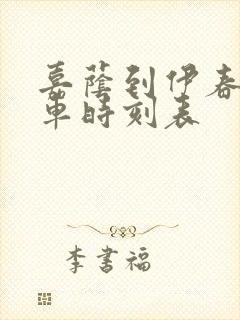 嘉蔭到伊春
車時刻表
李書福